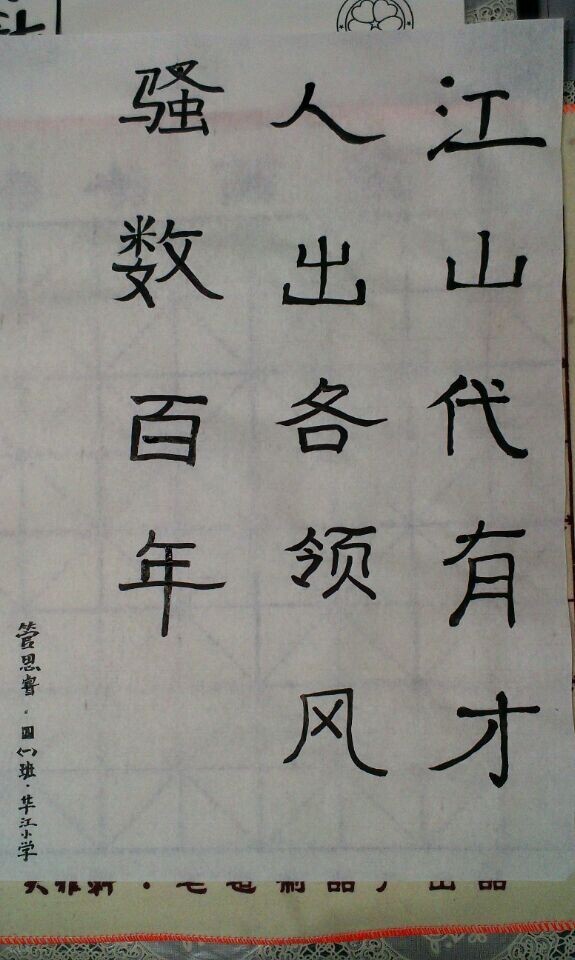 江山代有才
人出各领风
骚数百年
管思睿·四(一)班·华江小学